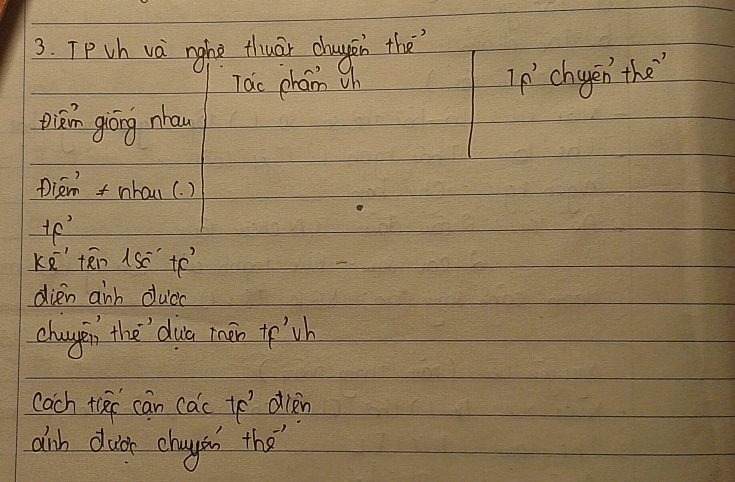 3. TP vh và nghệ thuật chuyển thể
Tác phẩm vh
Tp' chyển thể
Điểm giống nhau
Điểm ≠ nhau (.)
tp'
Kể tên 1 số tp'
điện ảnh được
chuyển thể dựa trên tp' vh
Cách tiếp cận các tp' điện
ảnh được chuyển thể